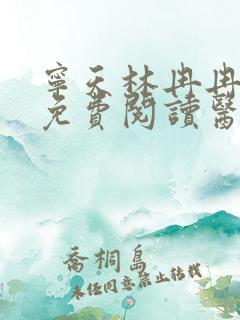 寧天林冉冉
免費閱讀醫
喬桐島
未经同意禁止转载